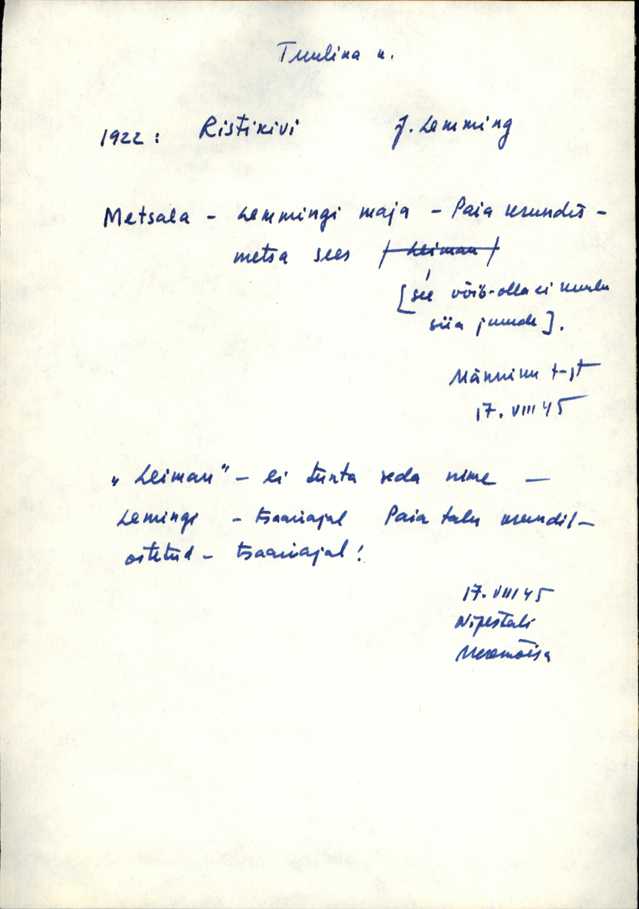 Tuulina n.
1922: Ristikivi J. Lemming
Metsala - Lemmingi maja - Paia krundil -
metsa sees / Leiman /
[see võib-olla ei kuulu
siia juurde].
Männiku t-lt
17. VIII 45
"Leiman" - ei tunta seda nime -
Lemingi - tsaariajal Paia talu krundil -
ostetud - tsaariajal!
17. VIII 45
Nipestali
Meremõisa